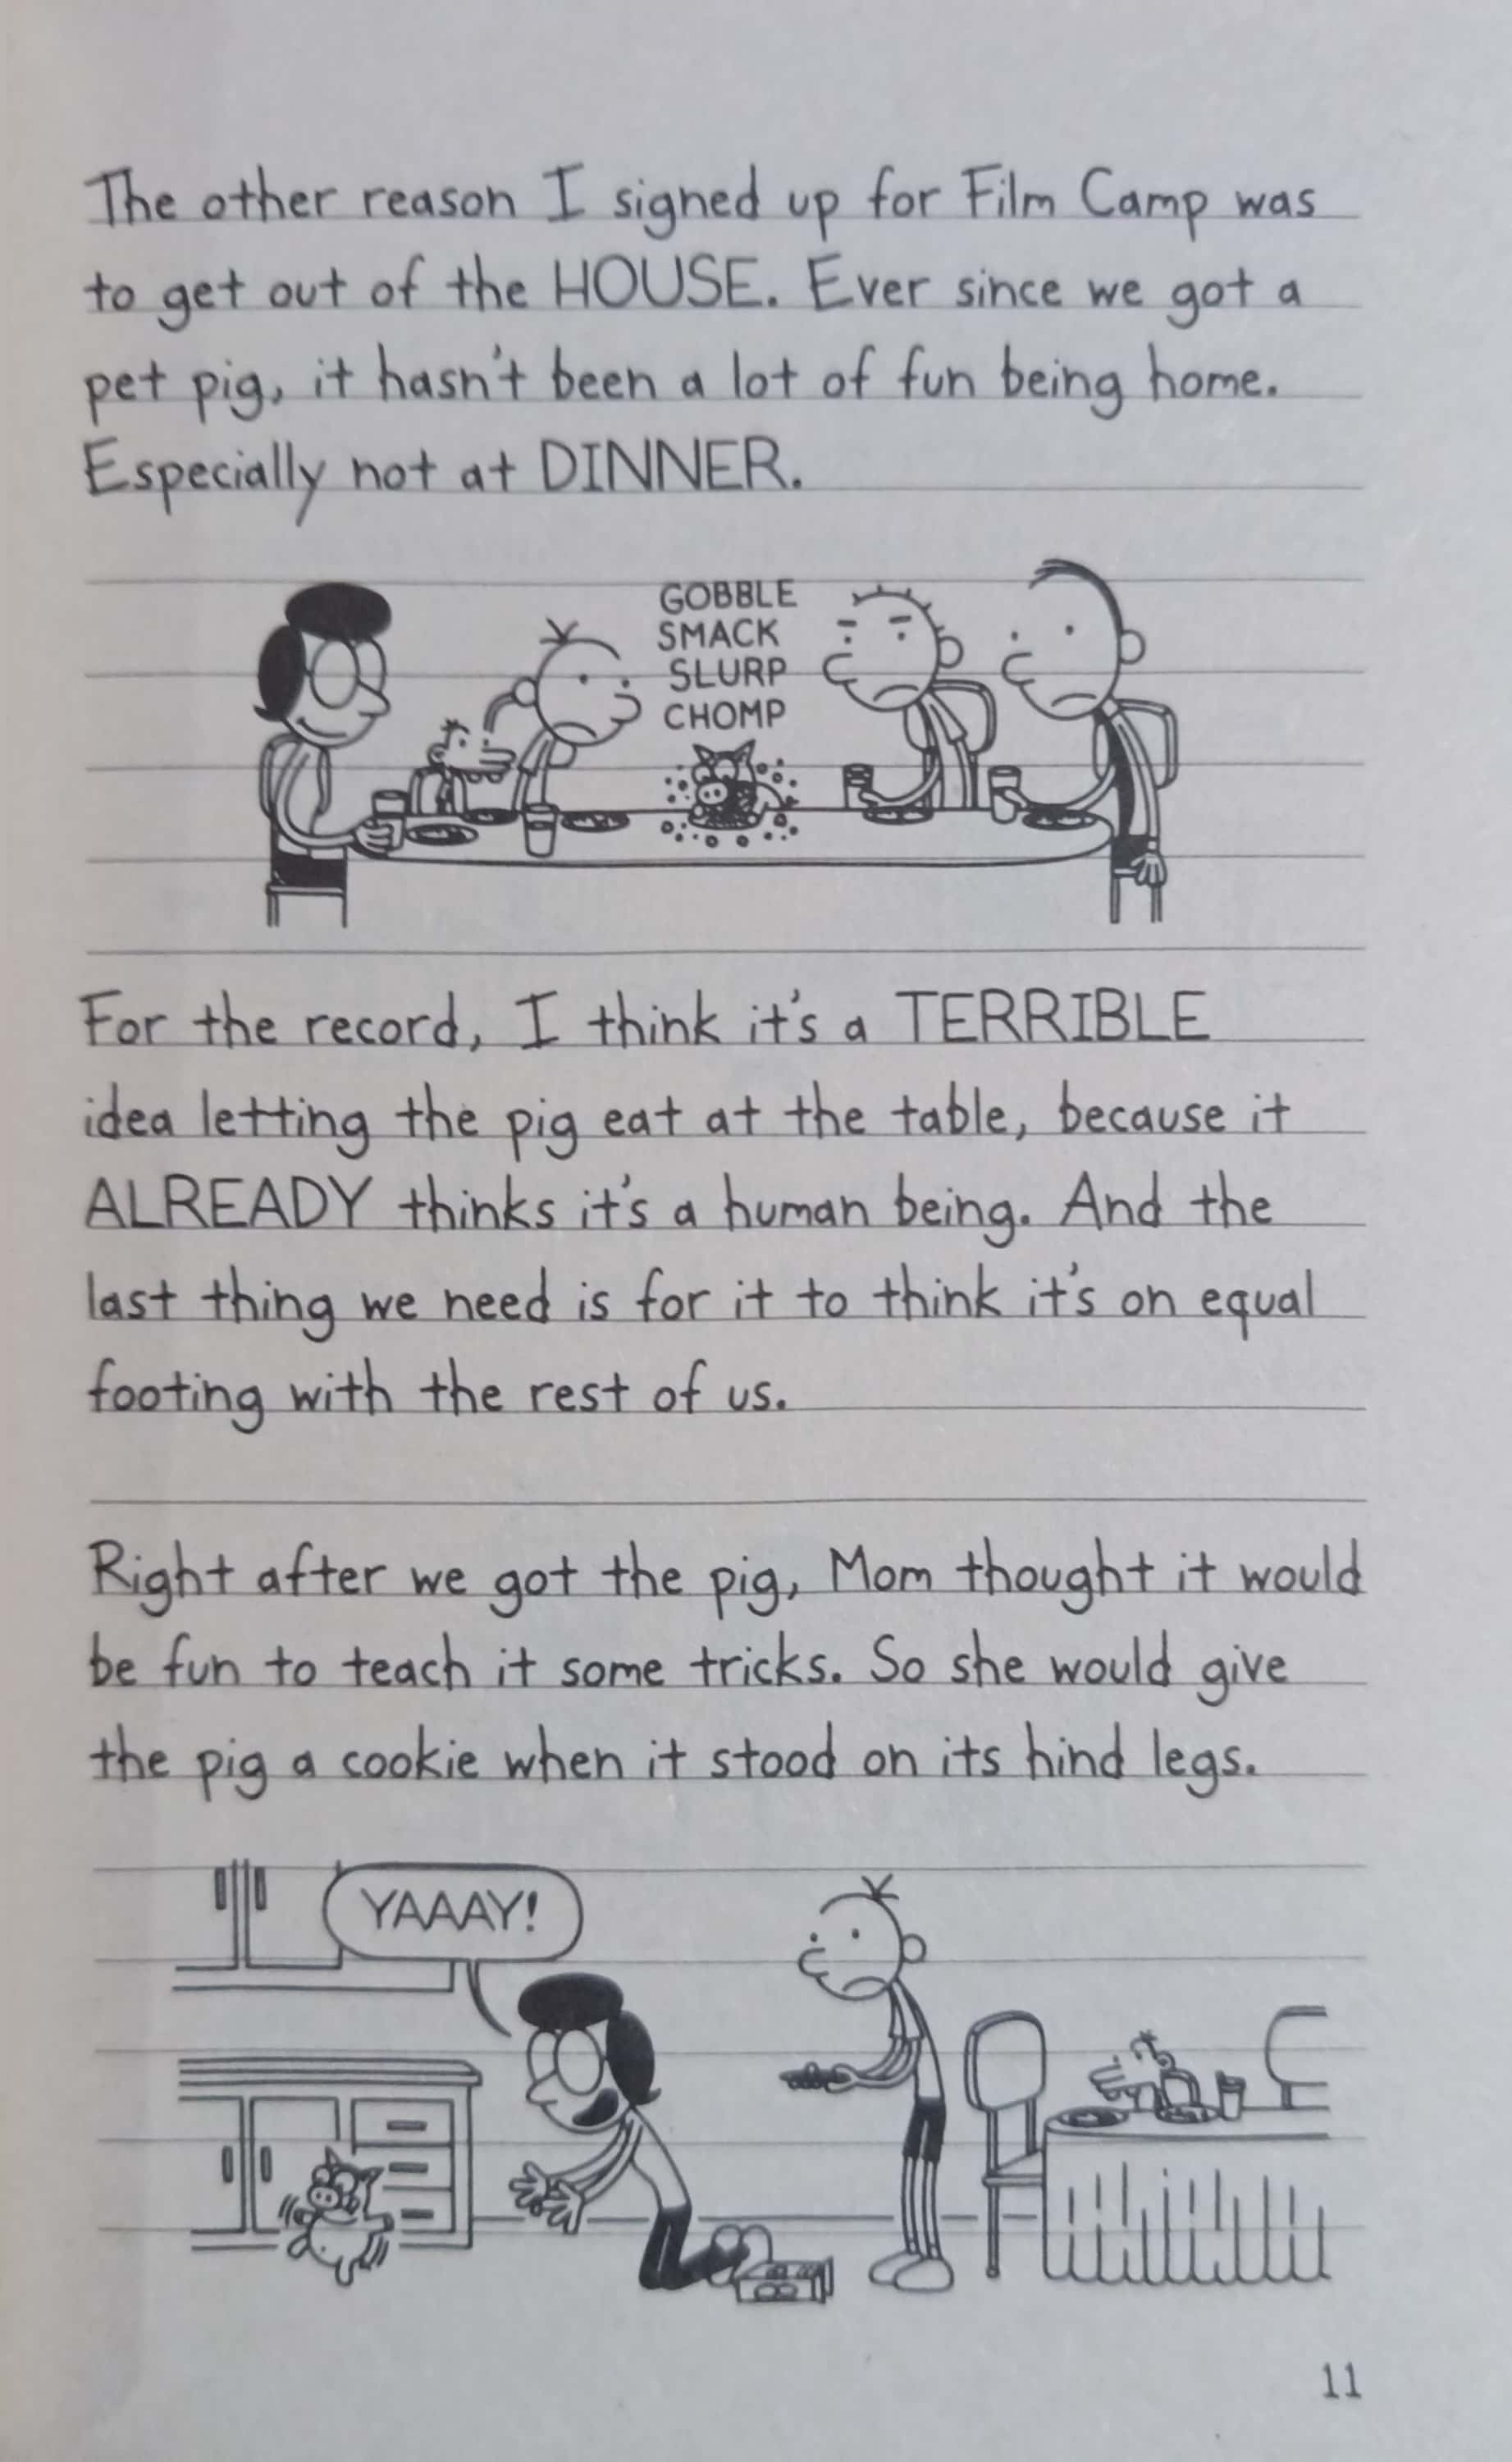 The other reason I signed up for Film Camp was
to get out of the HOUSE. Ever since we got a
pet pig, it hasn't been a lot of fun being home.
Especially not at DINNER.
GOBBLE
SMACK
SLURP
CHOMP
For the record, I think it's a TERRIBLE
idea letting the pig eat at the table, because it
ALREADY thinks it's a human being. And the
last thing we need is for it to think it's on equal
footing with the rest of us.
Right after we got the pig, Mom thought it would
be fun to teach it some tricks. So she would give
the pig a cookie when it stood on its hind legs.
YAAAY!
11